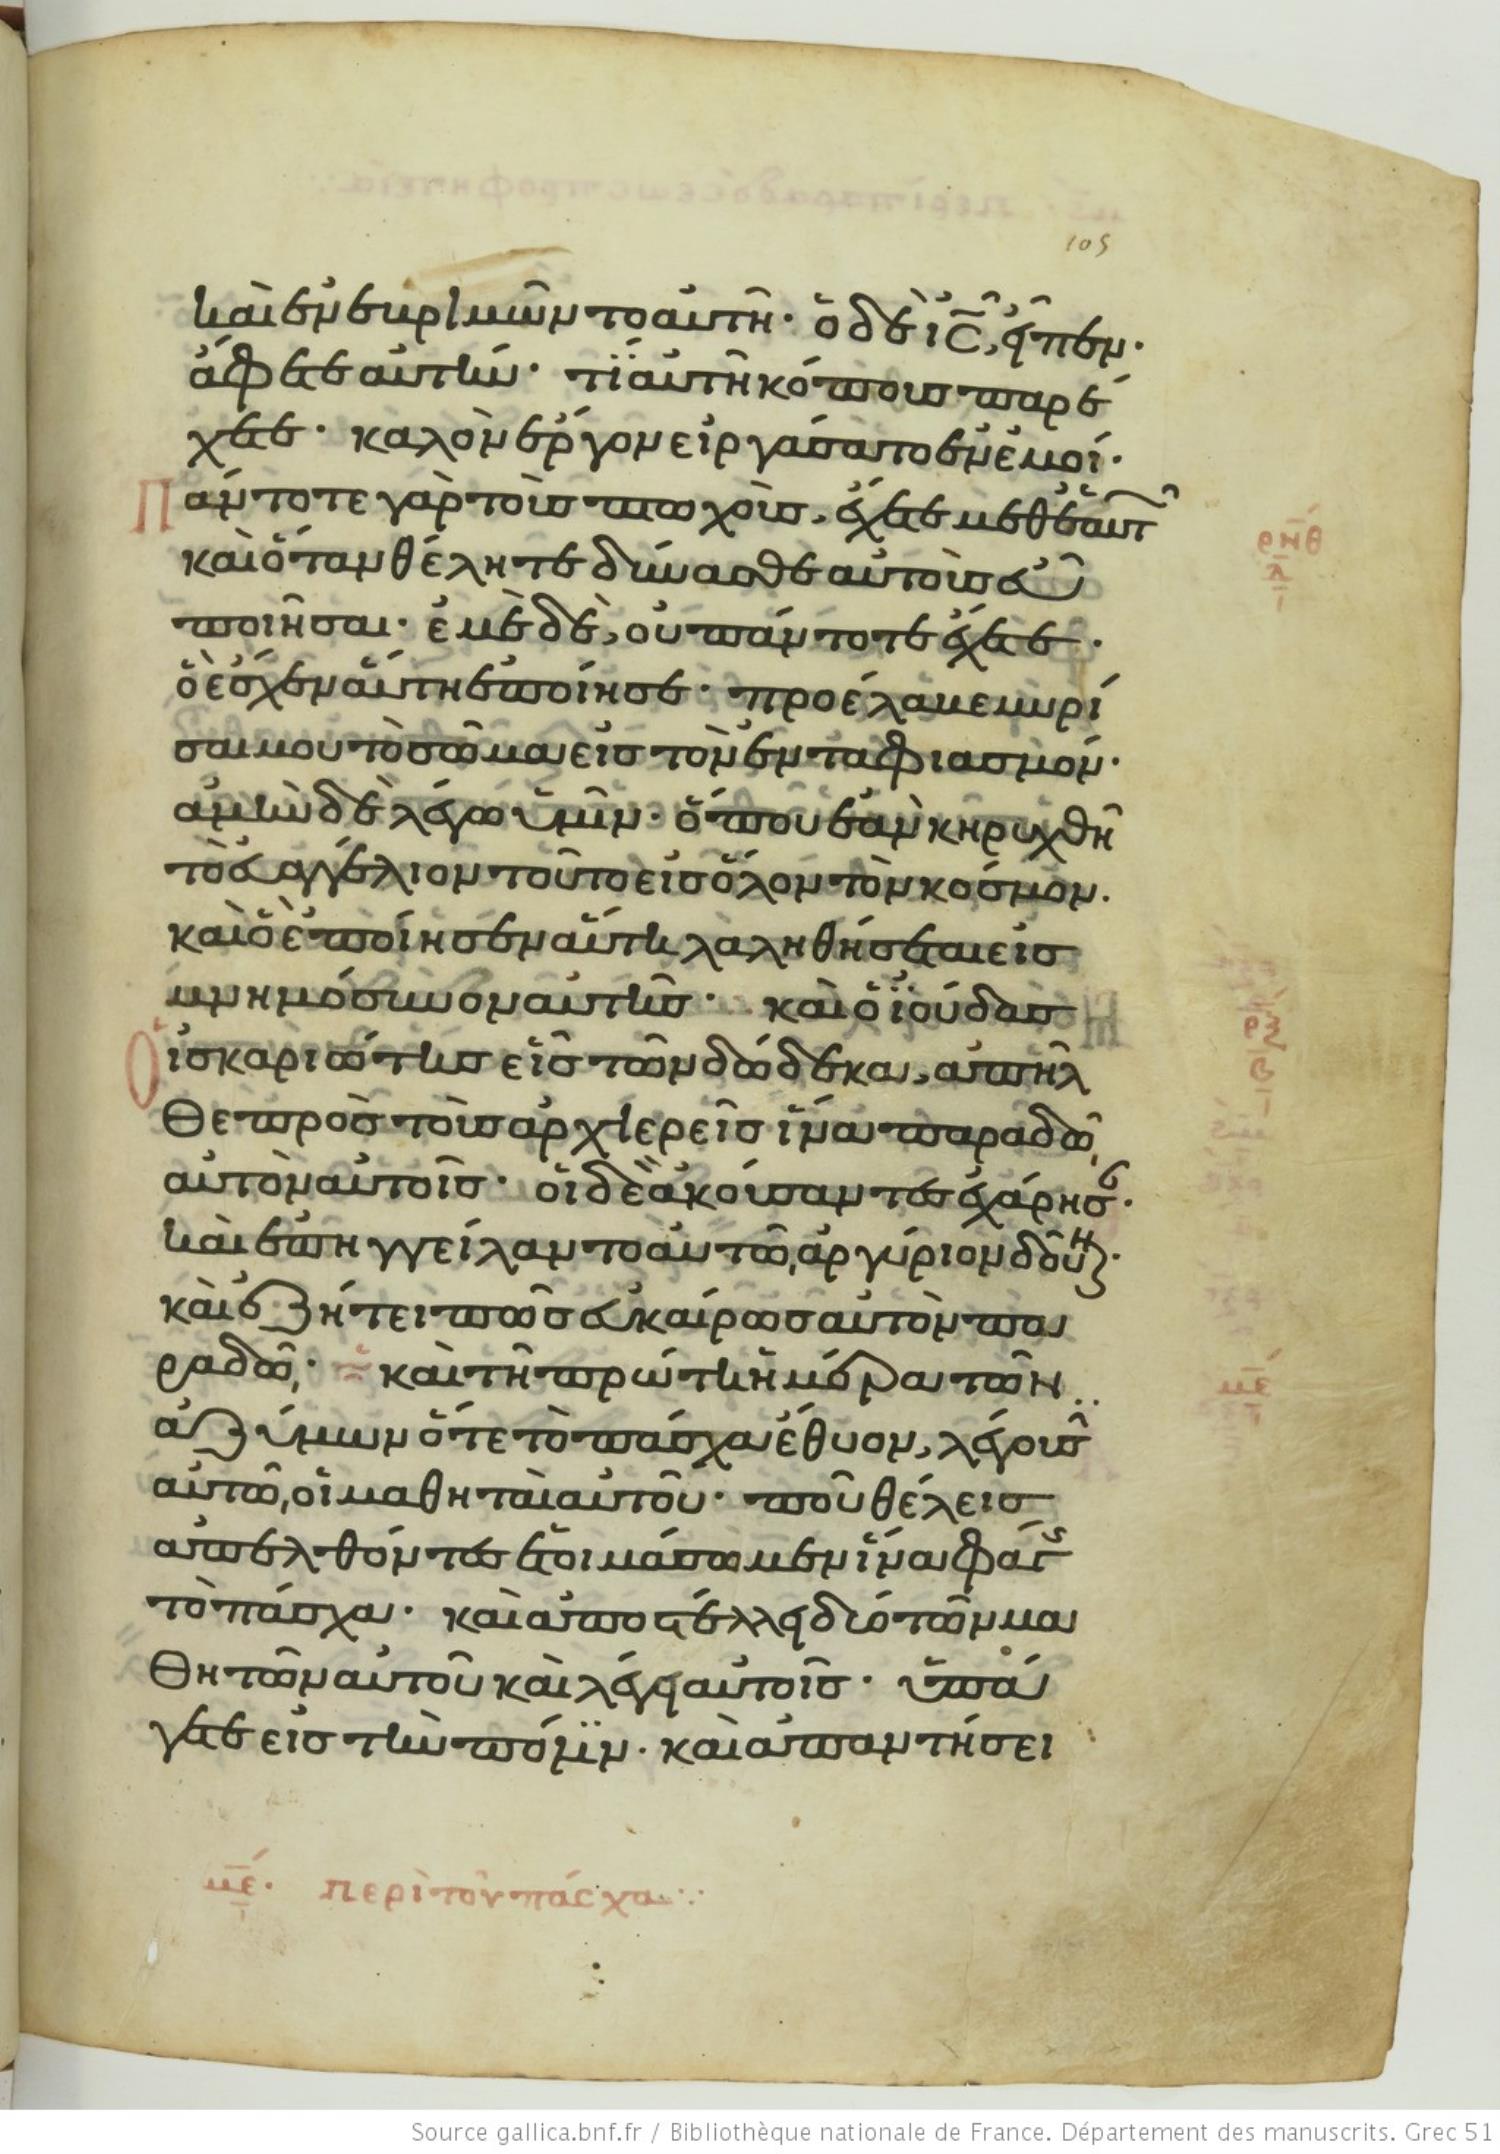 105
καὶ ἐνεβριμῶντο αὐτῆ· ὁ δὲ ις, εἶπεν·
ἄφετε αὐτήν· τί αὐτῆ κόπους παρέ
χετε· καλὸν ἔργον εἰργάσατο ἐν ἐμοί·
Πάντοτε γὰρ τοὺς πτωχοὺς, ἔχετε μεθ ἑαυτ
καὶ ὅταν θέλητε δύνασθε αὐτοὺς εὖ
ποιῆσαι· ἐμὲ δὲ, οὐ πάντοτε ἔχετε·
ὃ ἔσχεν αὕτη ἐποίησε· προέλαβε μυρί
σαι μου τὸ σῶμα εἰς τὸν ἐνταφιασμόν·
ἀμὴν δὲ λέγω ὑμῖν· ὅπου ἐὰν κηρυχθῆ
τὸ εὐαγγέλιον τοῦτο εἰς ὅλον τὸν κόσμον.
καὶ ὃ ἐποίησεν αὕτη λαληθήσεται εἰς
μνημόσυνον αὐτῆς· καὶ ὁ ϊούδας
Ὁ ἰσκαριώτης εἷς τῶν δώδεκα, ἀπῆλ
θε πρὸς τοὺς ἀρχιερεῖς ἵνα παραδῶ,
αὐτὸν αὐτοῖς· οἱ δὲ ἀκούσαντες ἐχάρησ·
καὶ ἐπηγγείλαντο αὐτῶ, ἀργύριον δοῦν·
καὶ ἐζήτει πῶς εὐκαίρως αὐτὸν πα
ραδῶ,· καὶ τῆ πρώτη ἡμέρα τῶν
ἀζύμων ὅτε τὸ πάσχα ἔθυον, λέγουσ
αὐτῶ, οἱ μαθηταὶ αὐτοῦ· ποῦ θέλεις
ἀπελθόντες ἑτοιμάσωμεν ἵνα φάγ
τὸ πάσχα· καὶ ἀποστέλλει δύο τῶν μα
θητῶν αὐτοῦ καὶ λέγει αὐτοῖς· ὑπά
γετε εἰς τὴν πόλιν· καὶ ἀπαντήσει
ρνθ
α
ρξ
β
με
με· περὶ τοῦ πάσχα
Source gallica.bnf.fr / Bibliothèque nationale de France. Département des manuscrits. Grec 51